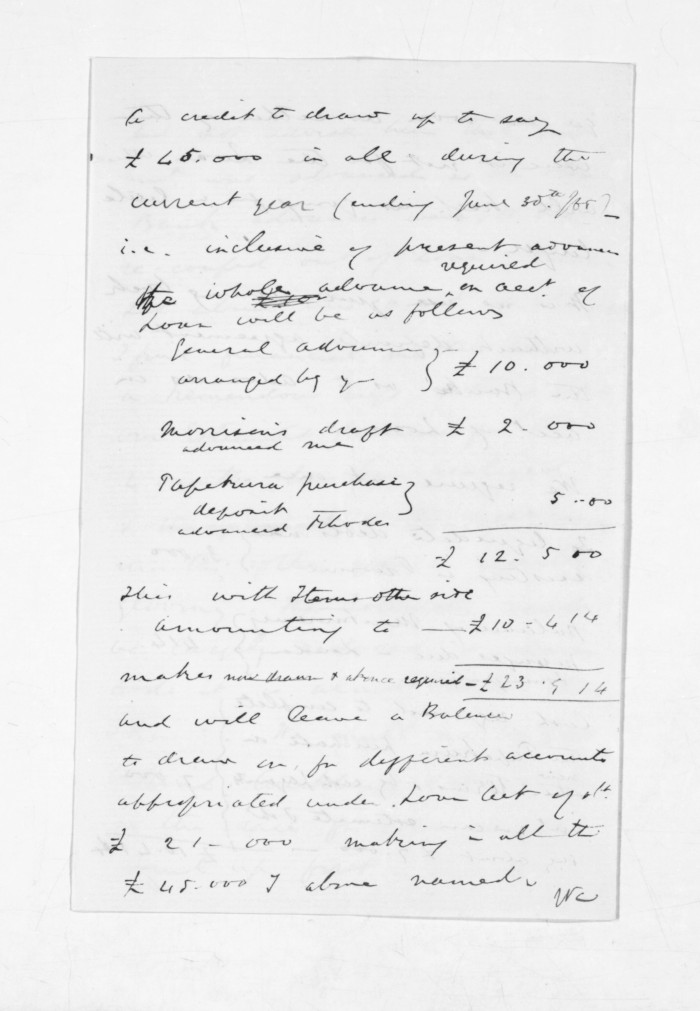 a credit to draw up to say
£45.000 in all during the
current year (ending June 30th /65)
i.e. inclusive of present advances
required
the whole advance on acct. of
Loan will be as follows
General advance }
arranged by you } £10.000
Morrison's draft £2.000
advanced me
Tapetuna purchase }
deposit 500
advanced Rhodes
£12.500
This with Items other side
amounting to — £10-414
makes now drawn & above required - £23.914
and will leave a Balance
to draw on for different accounts
appropriated under Loan Act of abt.
£21-000 making in all the
£45.000 I above named.